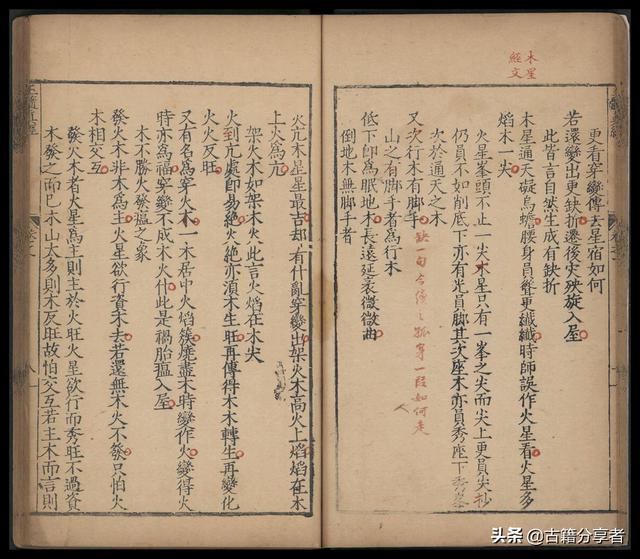 木星
經文
更看穿變傳天星宿如何
若還變出更缺折遷後灾殃旋入屋
此皆言自然生成有缺折
木星通天礙烏蟾腰身員聳更纖纖時師誤作火星看火星多
焰木一尖
火星峯頭不止一尖木星只有一峯之尖而尖上更員尖杪
仍員不如削底下亦有光員脚其次座木亦員秀座下秀峯
次於通天之木
又次行木有脚手
缺一句今後之孤寡一段如何走
山之有脚手者爲行木
低下卽爲眠地木長遠延袤微微曲
倒地木無脚手者
火亢木星星最吉却有什亂穿變出架火木高火上焰焰在木
上火爲亢
架火木如架木火此言火焰在木尖
火到亢處卽易絶火絶亦須木生旺再傳得木木轉生再變化
火火反旺
又有名爲穿火木一木居中火焰簇燒盡木時變作火變得火
時亦爲福穿變不成木火什此是禍胎瘟入屋
木不勝火發瘟之象
發火木非木爲主火星欲行資木去若還無木火不發只怕火
木相交互
發火木者火星爲主則主於火旺火星欲行而秀旺不過資
木發之而已木山太多則木反旺故怕交互若主木而言則
八
头条 @古籍分享者